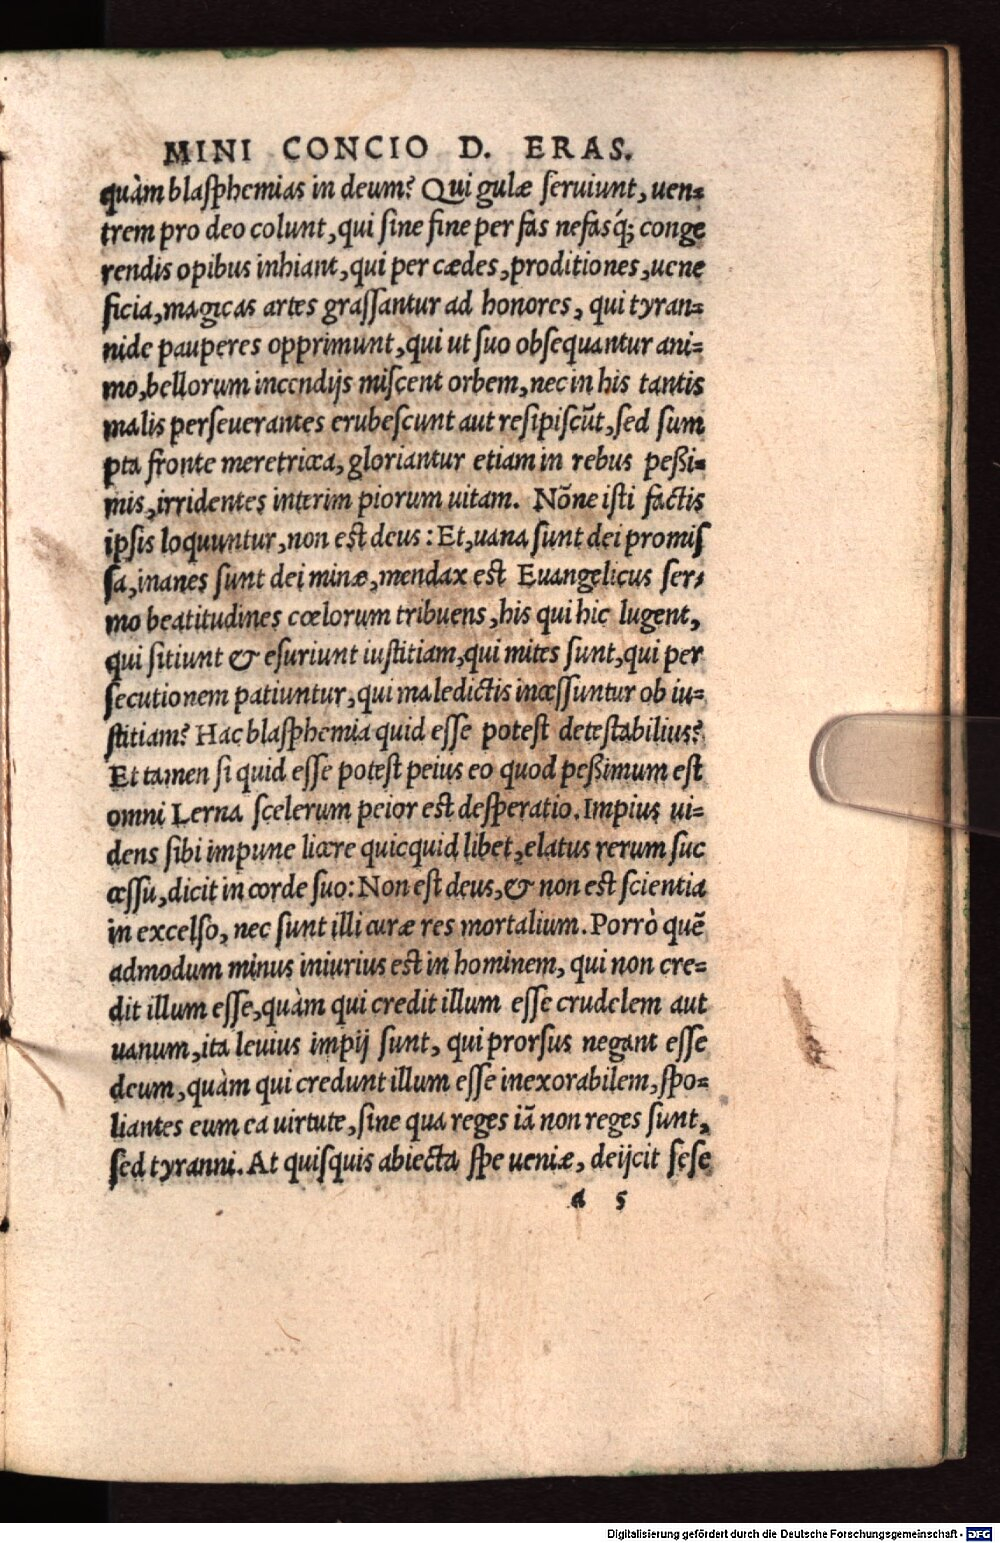 MINI CONCIO D. ERAS.
quàm blaſphemias in deum? Qui gulæ ſeruiunt, uen-
trem pro deo colunt, qui ſine fine per fas nefasq́; conge
rendis opibus inhiant, qui per cædes, proditiones, uene
ficia, magicas artes graſſantur ad honores, qui tyran-
nide pauperes opprimunt, qui ut ſuo obſequantur ani-
mo, bellorum incendijs miſcent orbem, nec in his tantis
malis perſeuerantes erubeſcunt aut reſipiſcũt, ſed ſum
pta fronte meretricea, gloriantur etiam in rebus peßi-
mis, irridentes interim piorum uitam. Nõne iſti factis
ipſis loquuntur, non eſt deus: Et, uana ſunt dei promiſ
ſa, inanes ſunt dei minæ, mendax eſt Euangelicus ſer-
mo beatitudines cœlorum tribuens, his qui hic lugent,
qui ſitiunt & eſuriunt iuſtitiam, qui mites ſunt, qui per
ſecutionem patiuntur, qui maledictis inceſſuntur ob iu-
ſtitiam? Hac blaſphemia quid eſſe poteſt deteſtabilius?
Et tamen ſi quid eſſe poteſt peius eo quod peßimum eſt
omni Lerna ſcelerum peior eſt deſperatio. Impius ui-
dens ſibi impune licere quicquid libet, elatus rerum ſuc
ceſſu, dicit in corde ſuo: Non eſt deus, & non eſt ſcientia
in excelſo, nec ſunt illi curæ res mortalium. Porrò quẽ
admodum minus iniurius eſt in hominem, qui non cre-
dit illum eſſe, quàm qui credit illum eſſe crudelem aut
uanum, ita leuius impij ſunt, qui prorſus negant eſſe
deum, quàm qui credunt illum eſſe inexorabilem, ſpo-
liantes eum ea uirtute, ſine qua reges iã non reges ſunt,
ſed tyranni. At quiſquis abiecta ſpe ueniæ, deijcit ſeſe
a 5
Digitalisierung gefördert durch die Deutsche Forschungsgemeinschaft - DFG